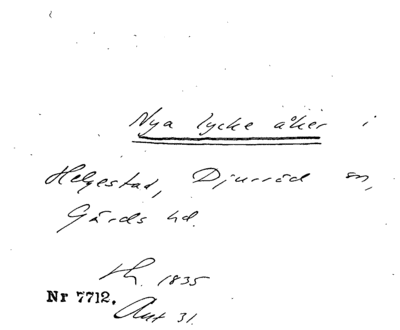 Nya lycke åker i
Helgestad, Djurröd sn,
Gärds hd.
h. 1835
Nr 7712.
Akt 31.